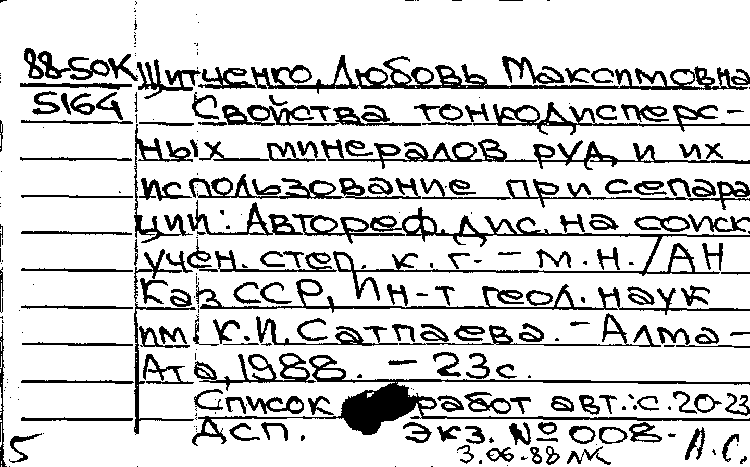 88-50К Щитченко, Любовь Максимовна
5164 Свойства тонкодисперс-
ных минералов руд и их
использование при сепара
ции: Автореф. дис. на соиск
учен. степ. к. г. - м. н. / АН
Каз ССР, Ин-т геол. наук
им. К. И. Сатпаева. - Алма-
Ата, 1988. - 23 с.
Список работ авт.: с. 20-23
ДСП. Экз. № 008.
5 3.06.88 А. С.